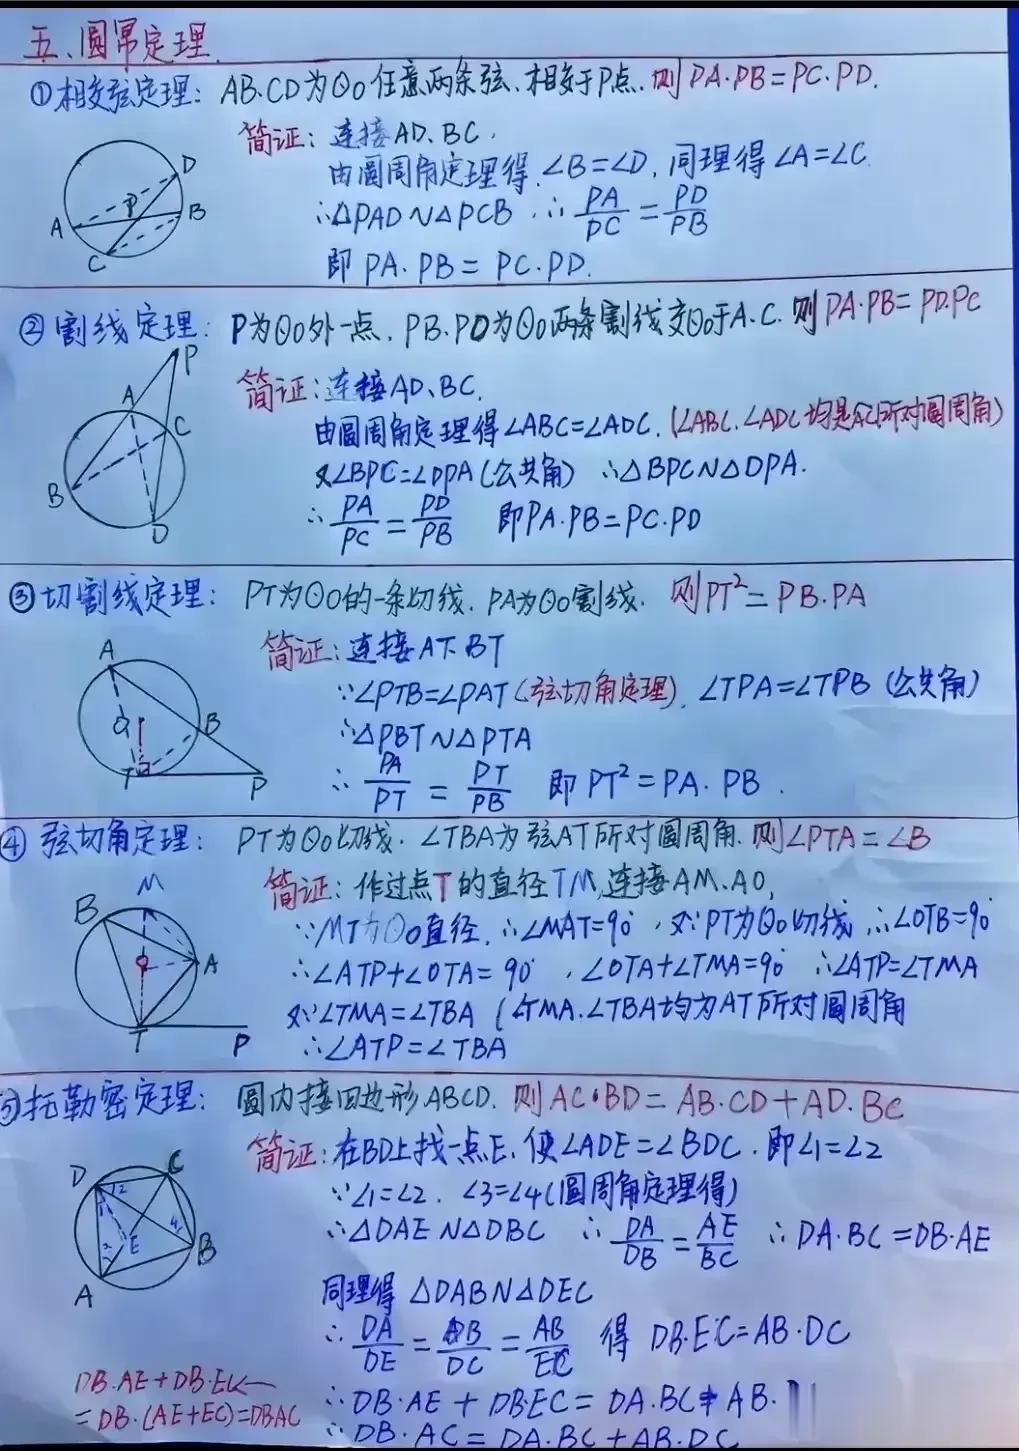 五、圆幂定理.
①相交弦定理: AB.CD为⊙O任意两条弦、相交于P点. 则PA·PB=PC·PD.
简证: 连接AD、BC.
由圆周角定理得.∠B=∠D, 同理得∠A=∠C.
∴△PAD∽△PCB ∴ PA/PC = PD/PB
即 PA·PB = PC·PD.
D
P
B
A
C
②割线定理: P为⊙O外一点. PB.PD为⊙O两条割线交⊙O于A.C. 则PA·PB=PD.PC
简证: 连接AD、BC.
由圆周角定理得∠ABC=∠ADC. (∠ABC.∠ADC均是AC所对圆周角)
又∠BPC=∠DPA(公共角) ∴△BPC∽△DPA.
∴ PA/PC = PD/PB 即PA·PB=PC·PD
P
A
C
B
D
③切割线定理: PT为⊙O的一条切线. PA为⊙O割线. 则PT²=PB.PA
简证: 连接AT、BT
∵∠PTB=∠PAT(弦切角定理). ∠TPA=∠TPB (公共角)
∴△PBT∽△PTA
∴ PA/PT = PT/PB 即 PT²=PA·PB.
A
O
B
T
P
④ 弦切角定理: PT为⊙O切线. ∠TBA为弦AT所对圆周角. 则∠PTA=∠B
简证: 作过点T的直径TM,连接AM.AO,
∵MT为⊙O直径. ∴∠MAT=90°, 又∵PT为⊙O切线 ∴∠OTB=90°
∴∠ATP+∠OTA=90°, ∠OTA+∠TMA=90° ∴∠ATP=∠TMA
又∵∠TMA=∠TBA (∠TMA.∠TBA均为AT所对圆周角
∴∠ATP=∠TBA
M
B
A
T
P
⑤托勒密定理: 圆内接四边形ABCD. 则AC·BD=AB·CD+AD·BC
简证: 在BD上找一点E, 使∠ADE=∠BDC. 即∠1=∠2
∵∠1=∠2. ∠3=∠4(圆周角定理得)
∴△DAE∽△DBC ∴ DA/DB = AE/BC ∴DA·BC=DB·AE
同理得 △DAB∽△DEC
∴ DA/DE = DB/DC = AB/EC 得 DB·EC=AB·DC
∴DB·AE + DB·EC = DA·BC+AB.
∴DB·AC = DA·BC+AB·DC
D
C
1
2
4
E
3
B
A
DB·AE+DB·EC
=DB·(AE+EC)=DBAC